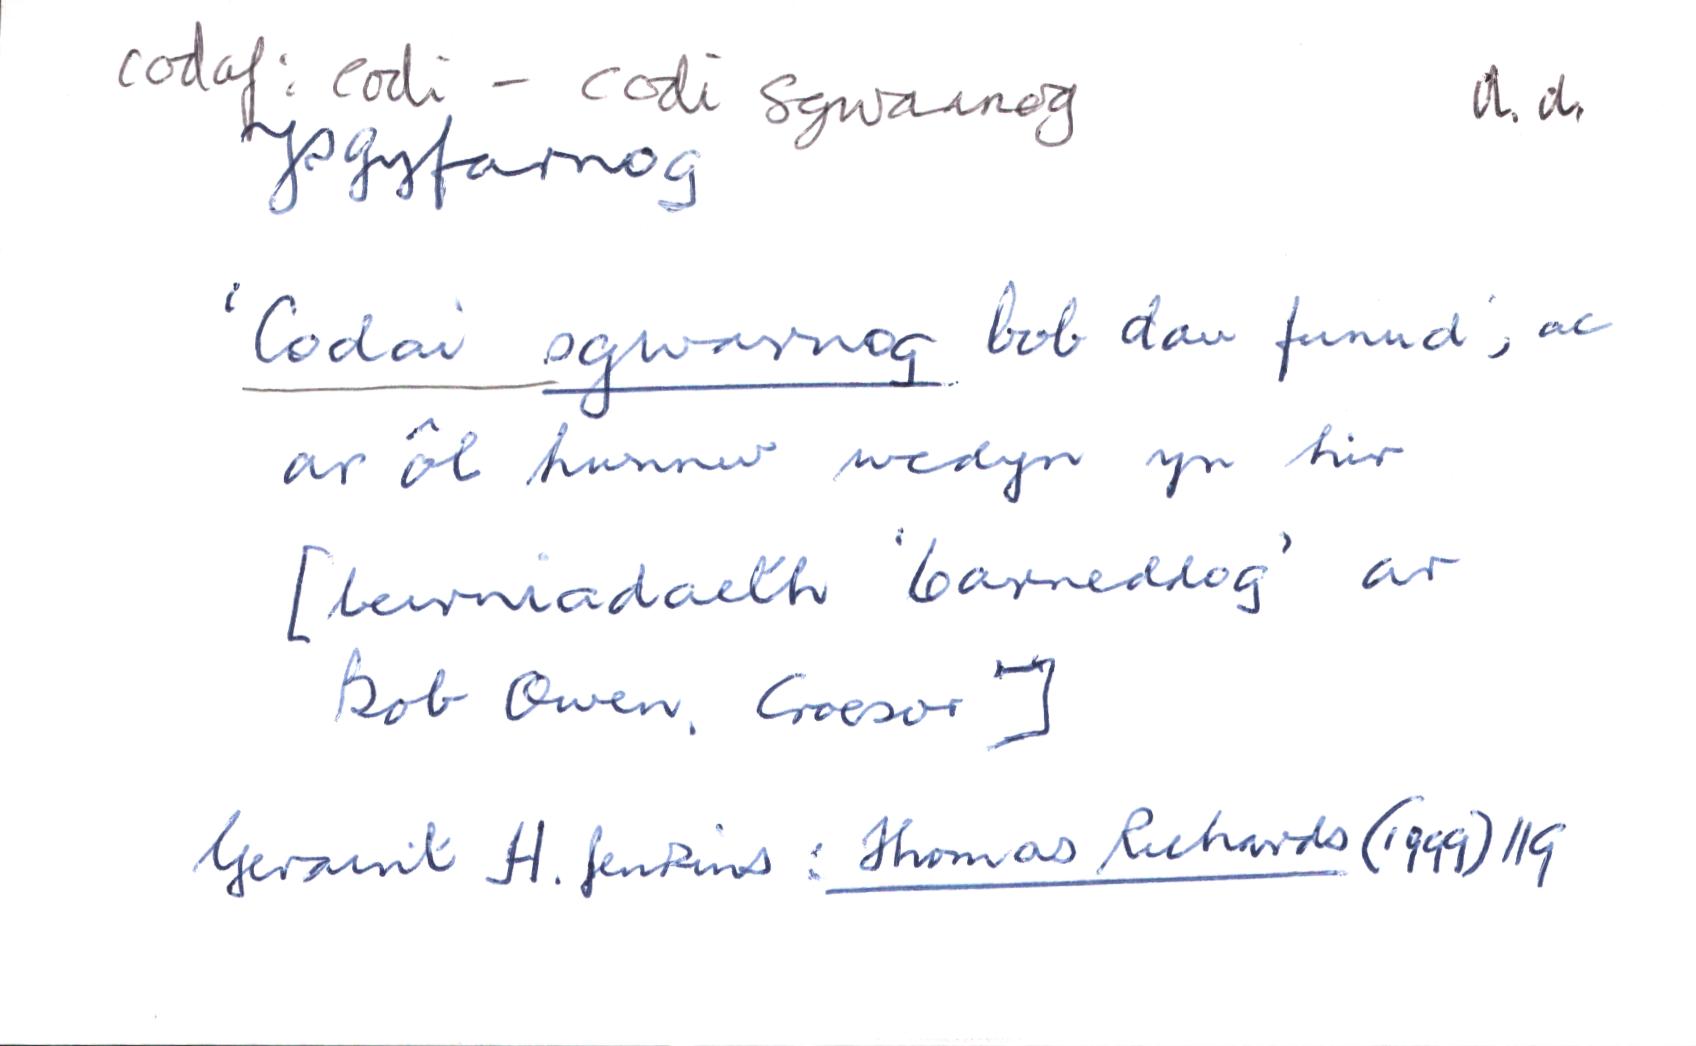 codaf: codi – codi sgwarnog d.d.
Ysgyfarnog
'Codai sgwarnog bob dau funud', ac
ar ôl hwnnw wedyn yn hir
[beirniadaeth 'Carneddog' ar
Bob Owen, Croesor]
Geraint H. Jenkins : Thomas Richards (1999) 119